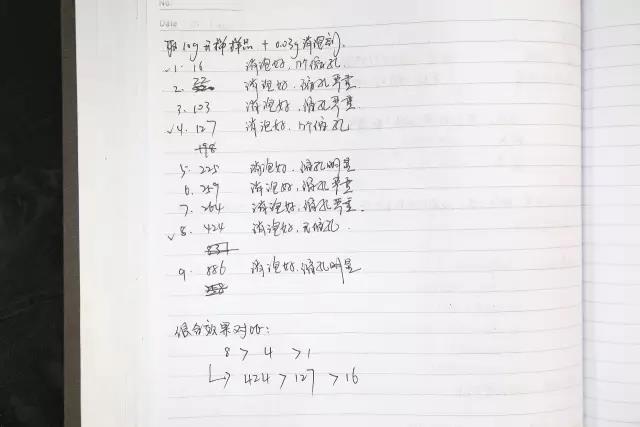 No.
Date
取10g无稀样品 + 0.03g消泡剂.
✓1. 16 消泡好, 1个缩孔.
2. 22 消泡好, 缩孔严重
3. 103 消泡好, 缩孔严重.
✓4. 127 消泡好, 1个缩孔
198
5. 225 消泡好, 缩孔明显
6. 259 消泡好, 缩孔严重
7. 264 消泡好, 缩孔严重.
✓8. 424 消泡好, 无缩孔.
837
9. 886 消泡好, 缩孔明显
258
综合效果对比:
8 > 4 > 1
↳ 424 > 127 > 16